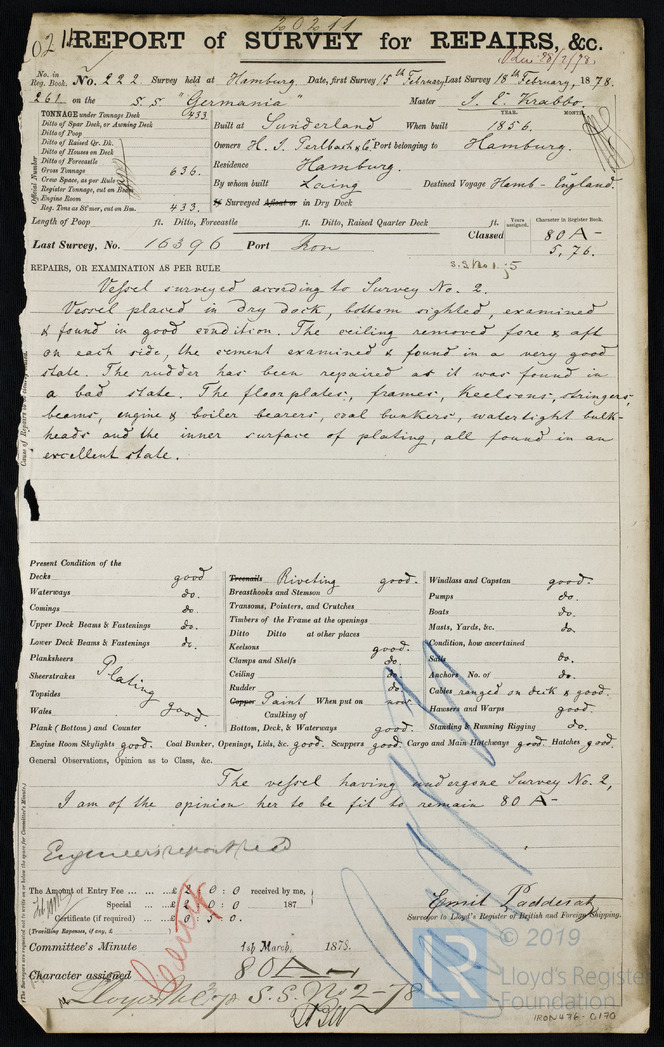 20211
0211 REPORT of SURVEY for REPAIRS, &c.
28/2/78
No. in Reg. Book. No. 222 Survey held at Hamburg. Date, first Survey 15th February Last Survey 18th February, 1878.
261 on the S. S. "Germania" Master J. C. Krabbo.
TONNAGE under Tonnage Deck 433
Ditto of Spar Deck, or Awning Deck
Ditto of Poop
Ditto of Raised Qr. Dk.
Ditto of Houses on Deck
Ditto of Forecastle
Gross Tonnage 636.
Crew Space, as per Rule
Register Tonnage, cut on Beam
Engine Room
Reg. Tons as St'mer, cut on Bm. 433.
Official Number
YEAR. MONTH.
Built at Sunderland When built 1856.
Owners H. J. Perlbach & Co. Port belonging to Hamburg.
Residence Hamburg.
By whom built Laing Destined Voyage Hamb - England.
If Surveyed Afloat or in Dry Dock
Length of Poop ft. Ditto, Forecastle ft. Ditto, Raised Quarter Deck ft.
Years assigned. Character in Register Book.
Last Survey, No. 16396 Port Iron Classed 80 A-
5.76.
S.S. No 1. 75
REPAIRS, OR EXAMINATION AS PER RULE
Vessel surveyed according to Survey No. 2.
Vessel placed in dry dock, bottom sighted, examined
& found in good condition. The ceiling removed fore & aft
on each side, the cement examined & found in a very good
state. The rudder has been repaired as it was found in
a bad state. The floorplates, frames, Keelsons, stringers,
beams, engine & boiler bearers, coal bunkers, watertight bulk-
heads and the inner surface of plating, all found in an
excellent state.
Present Condition of the
Decks good
Waterways do.
Comings do.
Upper Deck Beams & Fastenings do.
Lower Deck Beams & Fastenings do.
Planksheers
Sheerstrakes Plating
Topsides
Wales good.
Plank (Bottom) and Counter
Treenails Riveting good.
Breasthooks and Stemson
Transoms, Pointers, and Crutches
Timbers of the Frame at the openings
Ditto Ditto at other places
Keelsons good.
Clamps and Shelfs do.
Ceiling do.
Rudder do.
Copper Paint When put on now.
Caulking of
Bottom, Deck, & Waterways good.
Windlass and Capstan good.
Pumps do.
Boats do.
Masts, Yards, &c. do.
Condition, how ascertained
Sails do.
Anchors No. of do.
Cables ranged on deck & good.
Hawsers and Warps good.
Standing & Running Rigging do.
Engine Room Skylights good. Coal Bunker, Openings, Lids, &c. good. Scuppers good. Cargo and Main Hatchways good. Hatches good.
General Observations, Opinion as to Class, &c.
The vessel having undergone Survey No. 2,
I am of the opinion her to be fit to remain 80 A-
Engineers report
The Amount of Entry Fee £2:0:0 received by me,
Special £2:0:0 187
Certificate (if required) £0:5:0
(Travelling Expenses, if any, £
Emil Padderatz
Surveyor to Lloyd's Register of British and Foreign Shipping.
Committee's Minute 1st March, 1878.
Character assigned 80 A-
Lloyds S.S. No 2-78
© 2019
LR
Lloyd's Register
Foundation
IRON476-0170